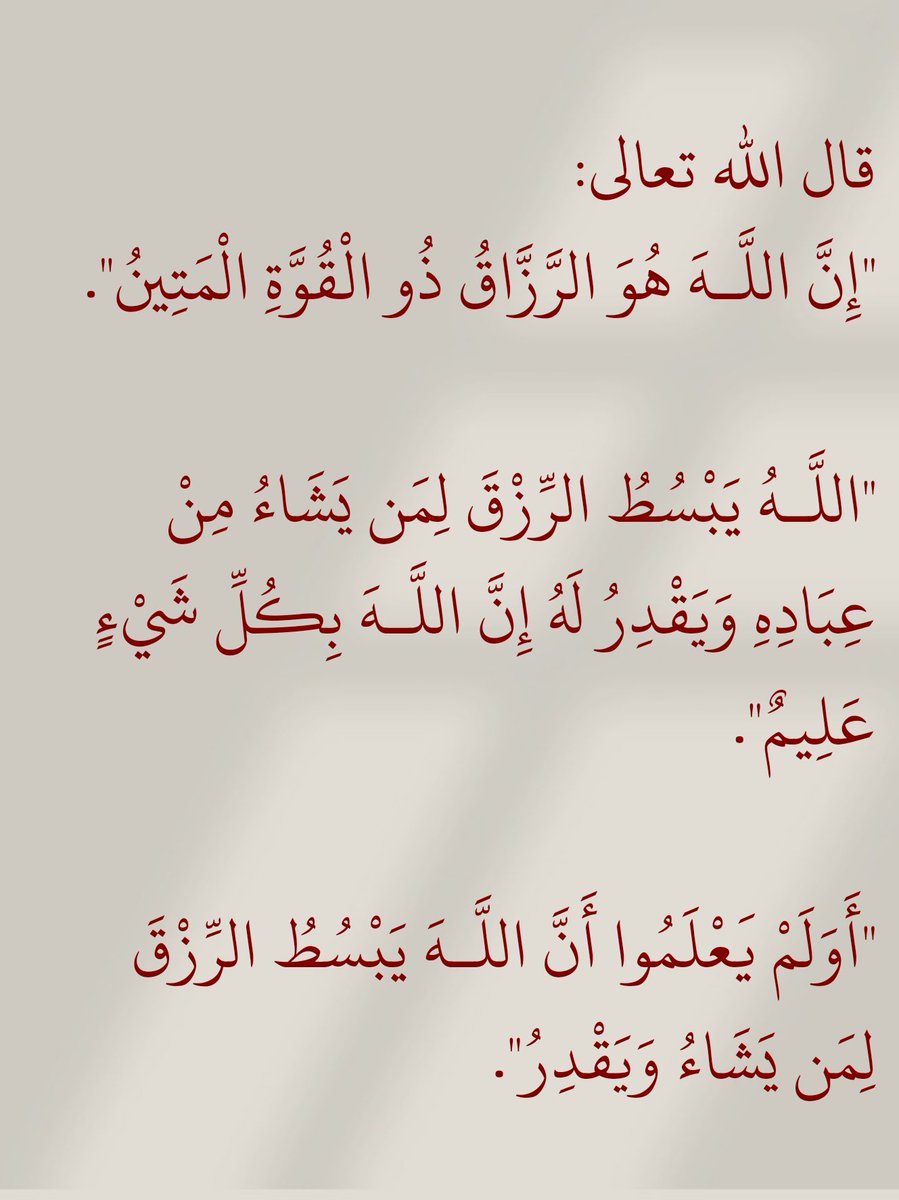 قال الله تعالى:
"إِنَّ اللَّـهَ هُوَ الرَّزَّاقُ ذُو الْقُوَّةِ الْمَتِينُ".
"اللَّـهُ يَبْسُطُ الرِّزْقَ لِمَن يَشَاءُ مِنْ
عِبَادِهِ وَيَقْدِرُ لَهُ إِنَّ اللَّـهَ بِكُلِّ شَيْءٍ
عَلِيمٌ".
"أَوَلَمْ يَعْلَمُوا أَنَّ اللَّـهَ يَبْسُطُ الرِّزْقَ
لِمَن يَشَاءُ وَيَقْدِرُ".